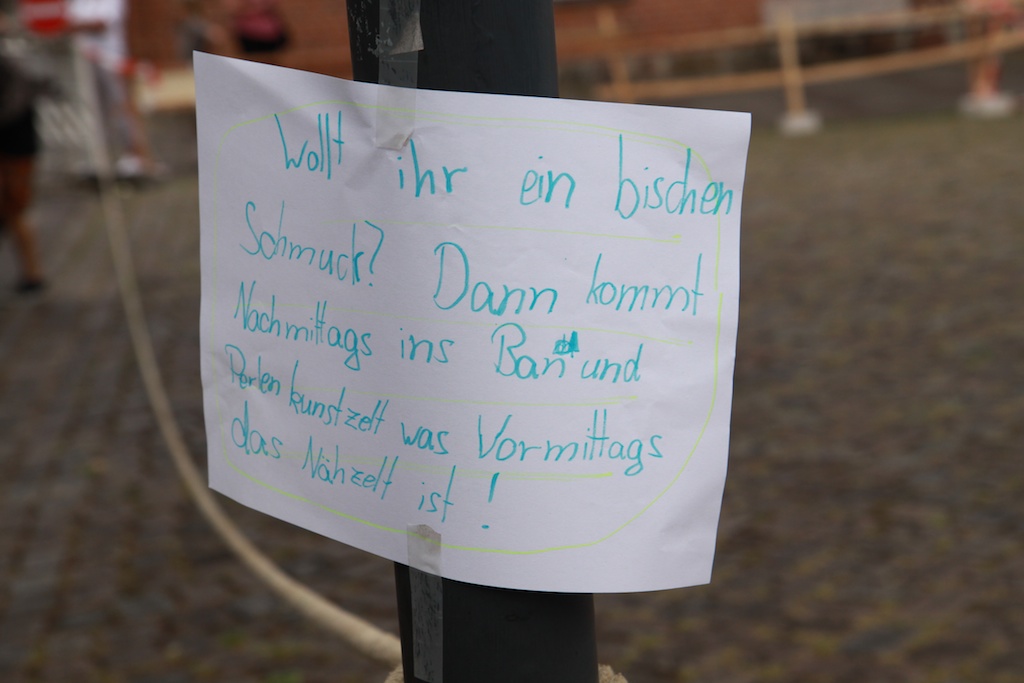 Wollt ihr ein bischen
Schmuck? Dann kommt
Nachmittags ins Band und
Perlen kunstzelt was Vormittags
das Nähzelt ist!